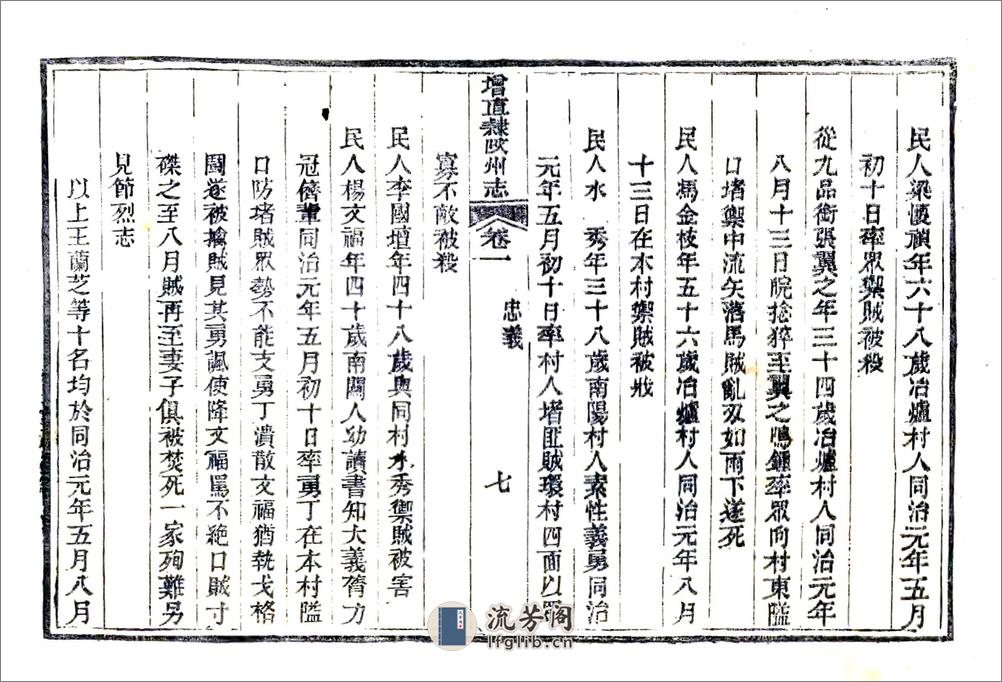 民人梁懷禎年六十八歲冶爐村人同治元年五月
初十日率眾禦賊被殺
從九品銜張翼之年三十四歲冶爐村人同治元年
八月十三日皖捻猝至翼之鳴鍾率眾向村東隘
口堵禦中流矢落馬賊亂刃如雨下遂死
民人馬金枝年五十六歲冶爐村人同治元年八月
十三日在本村禦賊被戕
民人水 秀年三十八歲南陽村人素性義勇同治
元年五月初十日率村人堵匪賊環村四面以眾
增直隸陝州志 卷一 忠義 七
寡不敵被殺
民人李國壇年四十八歲與同村水秀禦賊被害
民人楊文福年四十歲南關人幼讀書知大義膂力
冠儕輩同治元年五月初十日率勇丁在本村隘
口防堵賊眾勢不能支勇丁潰散文福猶執戈格
鬪遂被擒賊見其勇諷使降文福罵不絕口賊寸
磔之至八月賊再至妻子俱被焚死一家殉難另
見節烈志
以上王蘭芝等十名均於同治元年五月八月
流芳阁
lfglib.cn